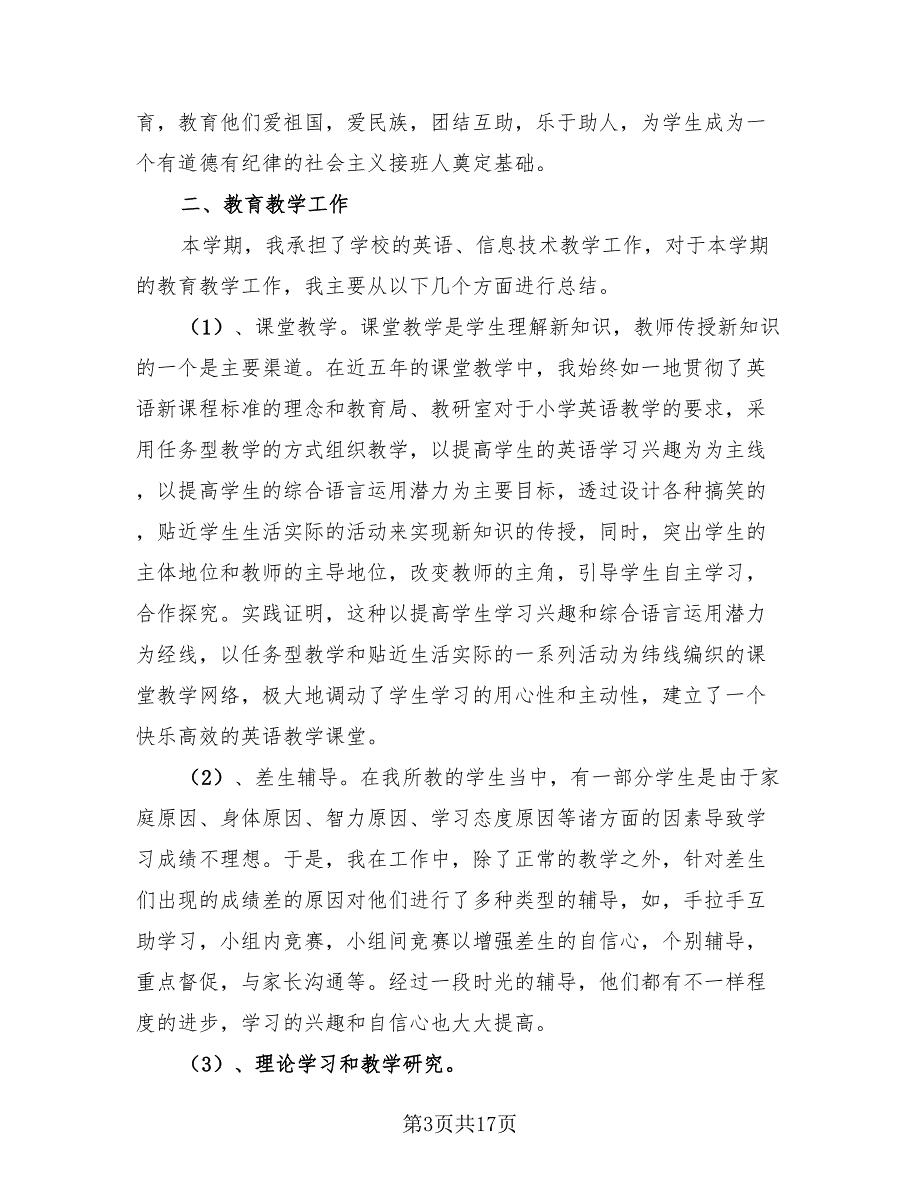 育，教育他们爱祖国，爱民族，团结互助，乐于助人，为学生成为一
个有道德有纪律的社会主义接班人奠定基础。
二、教育教学工作
本学期，我承担了学校的英语、信息技术教学工作，对于本学期
的教育教学工作，我主要从以下几个方面进行总结。
（1）、课堂教学。课堂教学是学生理解新知识，教师传授新知识
的一个是主要渠道。在近五年的课堂教学中，我始终如一地贯彻了英
语新课程标准的理念和教育局、教研室对于小学英语教学的要求，采
用任务型教学的方式组织教学，以提高学生的英语学习兴趣为为主线
，以提高学生的综合语言运用潜力为主要目标，透过设计各种搞笑的
，贴近学生生活实际的活动来实现新知识的传授，同时，突出学生的
主体地位和教师的主导地位，改变教师的主角，引导学生自主学习，
合作探究。实践证明，这种以提高学生学习兴趣和综合语言运用潜力
为经线，以任务型教学和贴近生活实际的一系列活动为纬线编织的课
堂教学网络，极大地调动了学生学习的用心性和主动性，建立了一个
快乐高效的英语教学课堂。
（2）、差生辅导。在我所教的学生当中，有一部分学生是由于家
庭原因、身体原因、智力原因、学习态度原因等诸方面的因素导致学
习成绩不理想。于是，我在工作中，除了正常的教学之外，针对差生
们出现的成绩差的原因对他们进行了多种类型的辅导，如，手拉手互
助学习，小组内竞赛，小组间竞赛以增强差生的自信心，个别辅导，
重点督促，与家长沟通等。经过一段时光的辅导，他们都有不一样程
度的进步，学习的兴趣和自信心也大大提高。
（3）、理论学习和教学研究。
第3页共17页